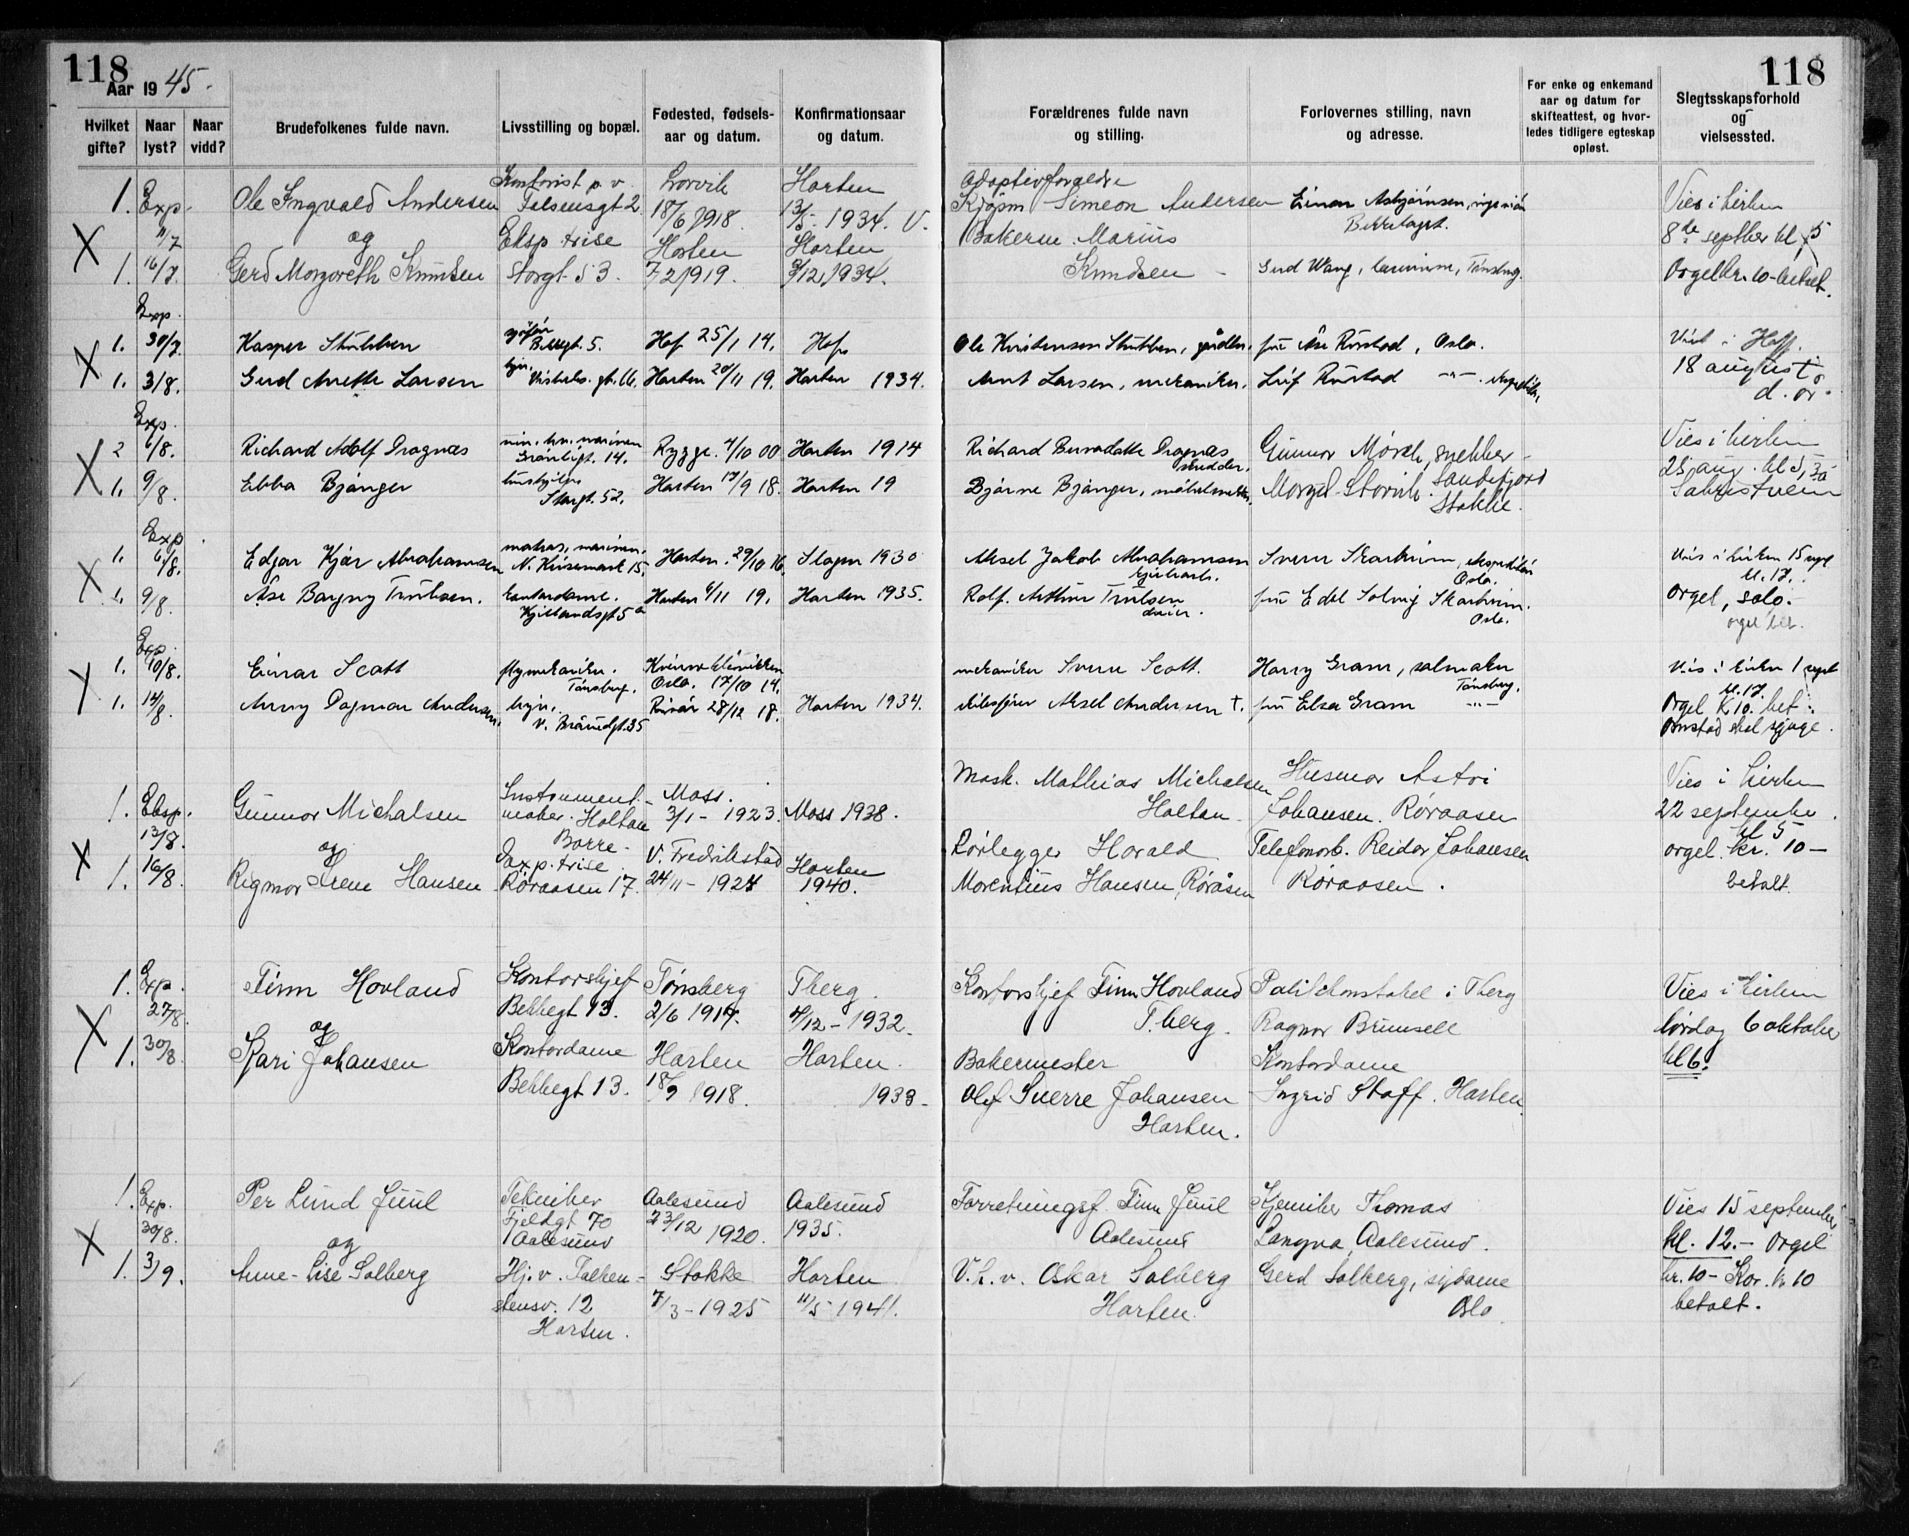 118
118
Aar 1945.
Hvilket gifte?
Naar lyst?
Naar vidd?
Brudefolkenes fulde navn.
Livsstilling og bopæl.
Fødested, fødsels-
aar og datum.
Konfirmationsaar
og datum.
Forældrenes fulde navn
og stilling.
Forlovernes stilling, navn
og adresse.
For enke og enkemand
aar og datum for
skifteattest, og hvor-
ledes tidligere egteskap
opløst.
Slegtsskapsforhold
og
vielsessted.
1. Exp. Ole Ingvald Andersen Kontorist p. v. Larvik Horten Adoptivforældre
Falsensgt 2 18/6 1918 13/5 - 1934. Simeon Andersen Einar Asbjørnsen, Vies i kirken
X 11/7 og Eksp. trise Horten Horten Bakersv. Marius Bekkelaget. 8de septber kl 5
1. 16/7. Gerd Margareth Knudsen Storgt. 53. 7/2 1919. 1934. Knudsen - Gerd Wang, Tønsberg. Orgel kr. 10 - betalt.
Exp.
1. 30/7 Kasper Stubben 5. Hof 25/1 14. Hof Ole Kristensen Stubben, fru Åse Rustad, Oslo. Viet i Hof
X 1. 3/8. Gerd Anette Larsen Horten 20/11 19. Horten 1934. Arnt Larsen, mekaniker. Leif Rustad -"- 18 august
d. å.
Exp.
2 6/8. Richard Adolf Dragnæs min. kv. marinen Grønligt. 14. Rygge. 4/10 00 Horten 1914 Richard Bernadotte Dragnæs skredder. Gunnar Mørch, snekker - Vies i kirken
X 1. 9/8. Ebba Bjånger Storgt. 52. Horten 17/9 18. Horten 19 Bjarne Bjånger, Sandefjord 25 aug. kl 5,30
Stokke. Sakristeiet
Exp.
1. 6/8. Edgar Kjær Abrahamsen matros, marinen. 15. Horten. 29/10 16. Slagen 1930 Aksel Jakob Abrahamsen Sverre Skarheim, Oslo. Vies i kirken 15 sept
kl. 17.
X 1. 9/8. Åse Borgny Trulsen. kontordame. Kjellandsgt 5a Horten 6/11 19. Horten 1935. Rolf Arthur Trulsen fru Edel Solveig Skarheim. Oslo. Orgel, solo.
orgel bet.
Exp.
1. 10/8. Einar Scott flymekaniker. Tønsberg. Kvinneklinikken Oslo. 17/10 14. mekaniker Sverre Scott. Harry Gram, salmaker Tønsberg. Vies i kirken 1 sept
kl. 17.
X 1. 14/8. Anny Dagmar Andersen. hjm. 35 28/12 18. Horten 1934. Aksel Andersen †. fru Elsa Gram -"- Orgel K 10. bet.
skal synge.
1. Eksp. Gunnar Michalsen Instrument- Moss. Mask. Mathias Michalsen Husmor Astri Vies i kirken
13/8. maker. Holtan 3/1 - 1923. Moss 1938. Holtan. Johansen. Røraasen 22 septembe
X og Borre - kl 5
1. 16/8. Rigmor Irene Hansen Exp. trise V. Fredrikstad Horten Rørlegger Harald Telefonarb. Reidar Johansen orgel. kr. 10 -
Røraasen 17. 24/11 - 1924 1940. Hansen, Røråsen Røraasen. betalt.
1. Exp. Finn Hovland Kontorskjef Tønsberg Tberg. Kontorskjef Finn Hovland Politikonstabel i Tberg Vies i kirken
X 27/8. og Bekkegt 13. 2/6 1917. 4/12 - 1932. T.berg. Ragnar Brunsell lørdag 6 oktober
1. 30/8 Kari Johansen Kontordame Horten Horten. Bakermester Kontordame kl 6.
Bekkegt 13. 18/9 1918. 1933. Olaf Sverre Johansen Ingrid Staff. Horten
Horten.
1. Exp. Per Lund Juul Tekniker Aalesund Aalesund Forretningsf. Finn Juul Kjemiker Thomas Vies 15 september
30/8. Fjeldgt 70 23/12 1920. 1935. Aalesund Langva Aalesund. kl. 12. - Orgel
X og Aalesund
1. 3/9. Anne-Lise Solberg Hj. v. Falken- Stokke Horten V.k.v. Oskar Solberg Gerd Solberg, sydame kr. 10 - Kor. kr 10
stensv. 12 7/3 - 1925 11/5 1941. Horten. Oslo betalt.
Horten.